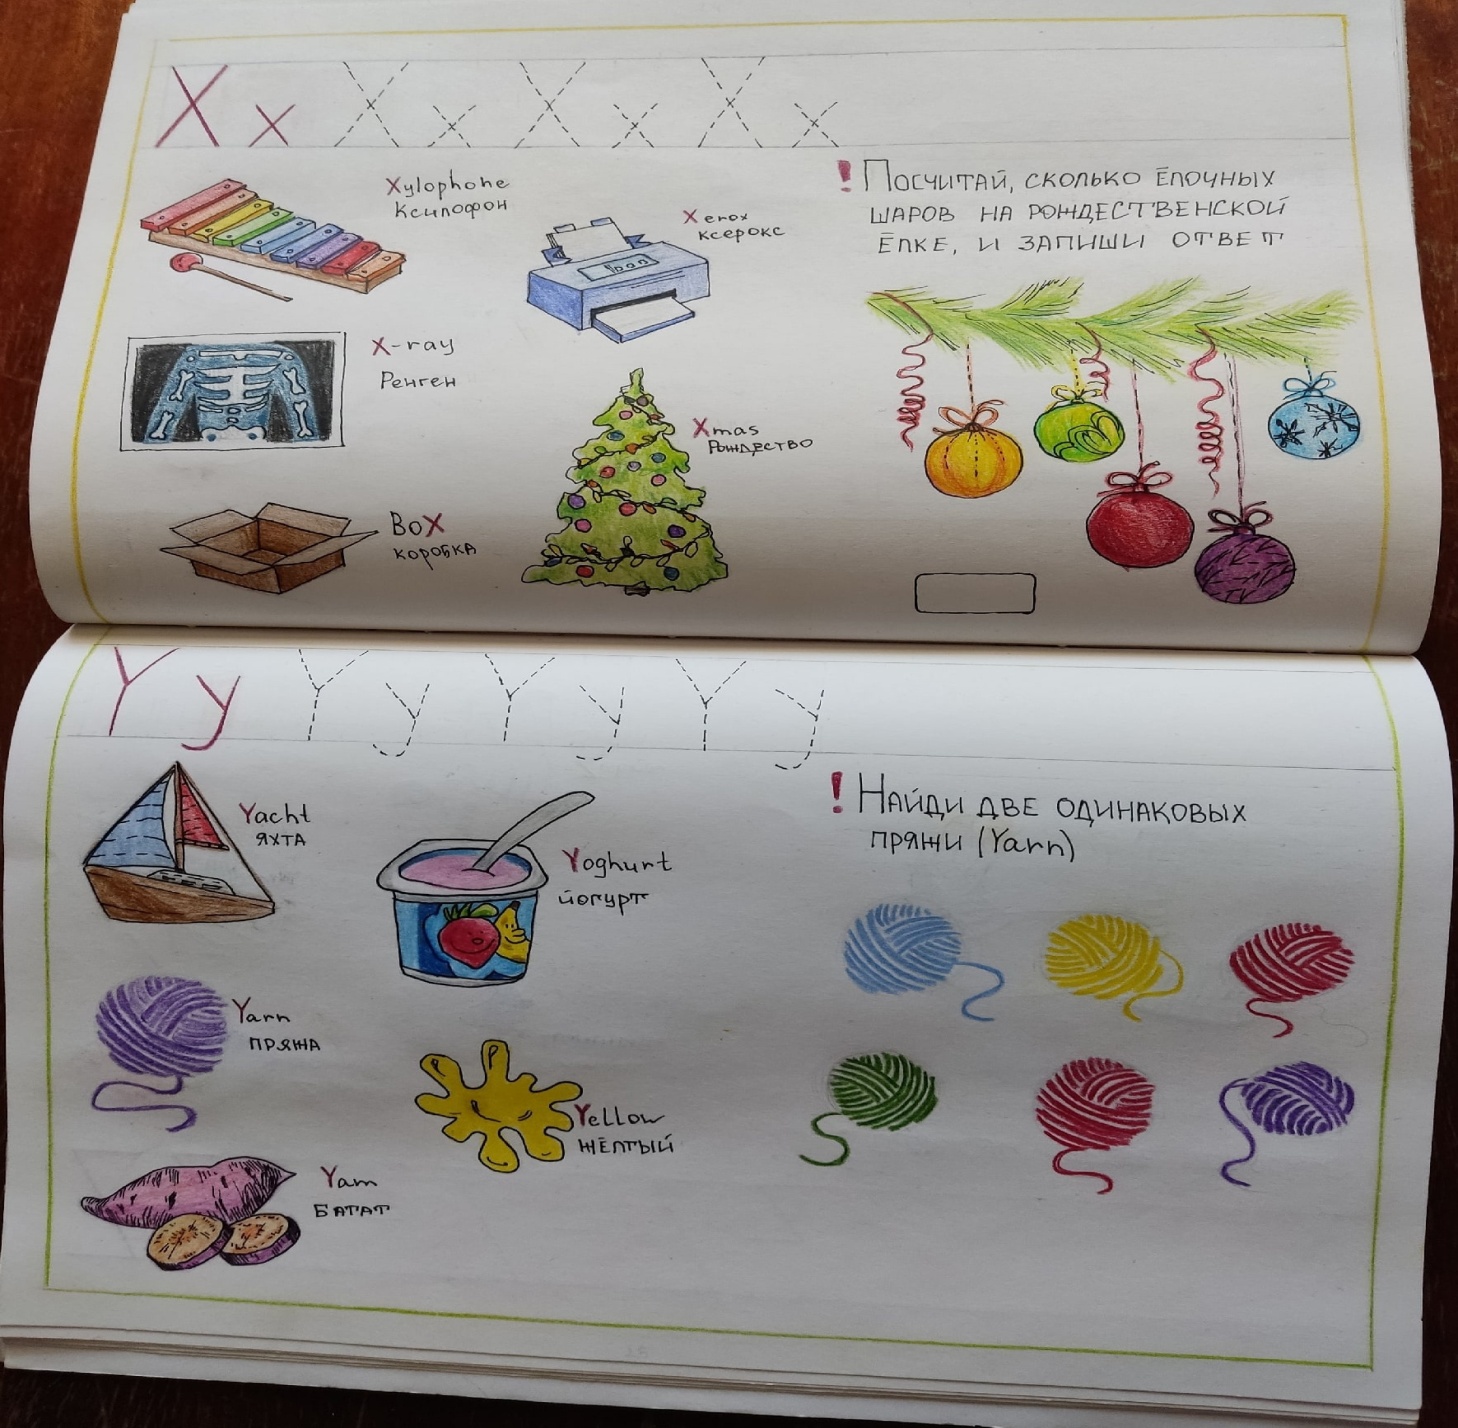 X x X x X x X x
Xylophone
Ксилофон
Xerox
ксерокс
X-ray
Ренген
Xmas
Рождество
BoX
коробка
! Посчитай, сколько ёлочных
шаров на рождественской
ёлке, и запиши ответ
Y y Y y Y y Y y
Yacht
яхта
Yoghurt
йогурт
Yarn
пряжа
Yellow
жёлтый
Yam
батат
! Найди две одинаковых
пряжи (Yarn)